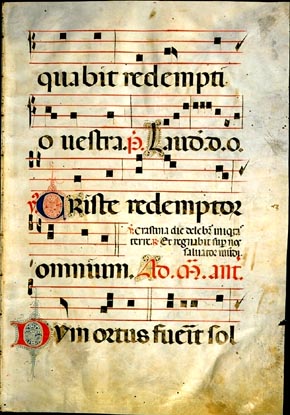 quabit redempti
o uestra. P. Laud. d. o.
V. Criste redemptor
V. Crastina die deleb. iniqti
terre. R. Et regnabit sup nos
saluator mūdi.
omnium. Ad. M. ant.
Dum ortus fuerit sol